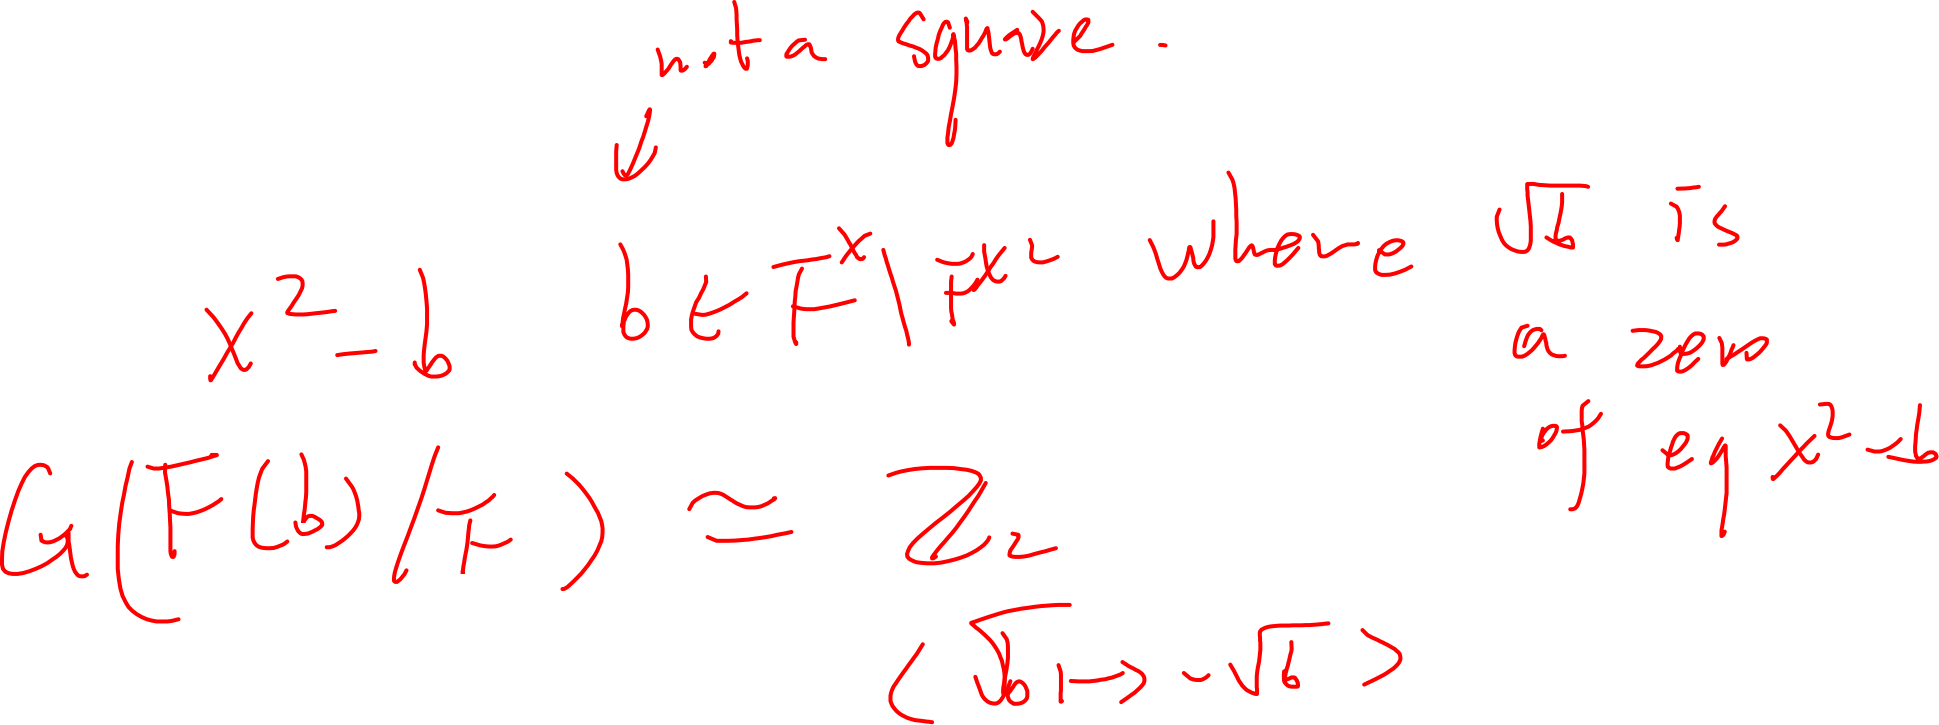 not a square.
x² - b b ∈ F^× \ F^×² where √b is
a zero
of eq x² - b
G(F(b)/F) ≃ ℤ₂
⟨√b ↦ -√b⟩